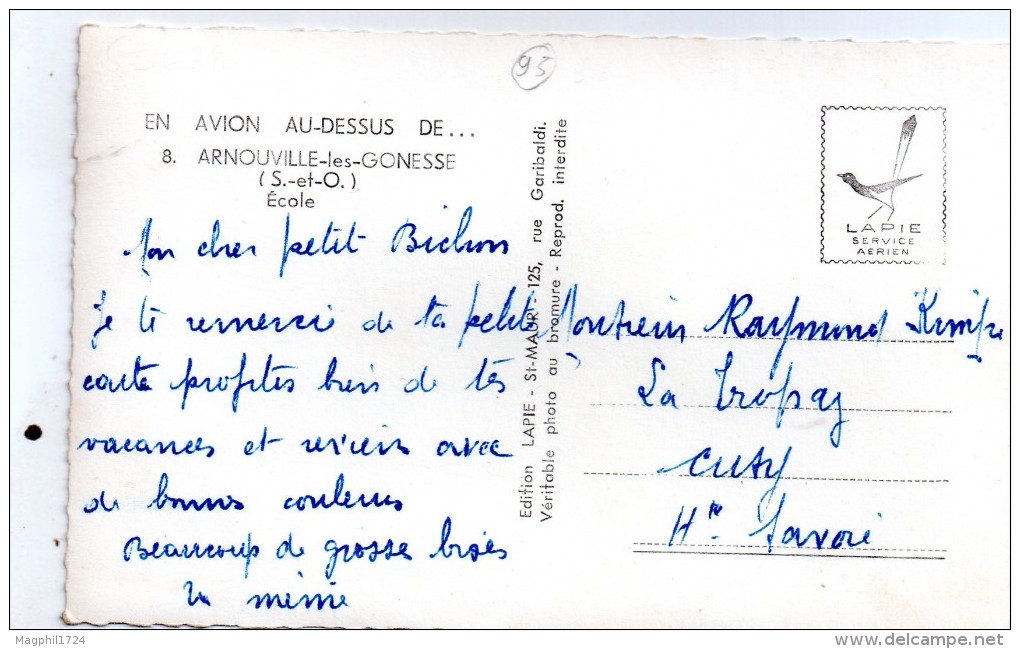 95
EN AVION AU-DESSUS DE...
8. ARNOUVILLE-les-GONESSE
(S.-et-O.)
École
Mon cher petit Bichon
Je te remercie de ta petite
carte profites bien de tes
vacances et reviens avec
de bonnes couleurs
Beaucoup de grosses bises
ta mémé
Edition LAPIE - St-MAUR - 125, rue Garibaldi.
Véritable photo au bromure - Reprod. interdite
LAPIE
SERVICE
AERIEN
Monsieur Raymond
La
Hte Savoie
Magphil1724
www.delcampe.net